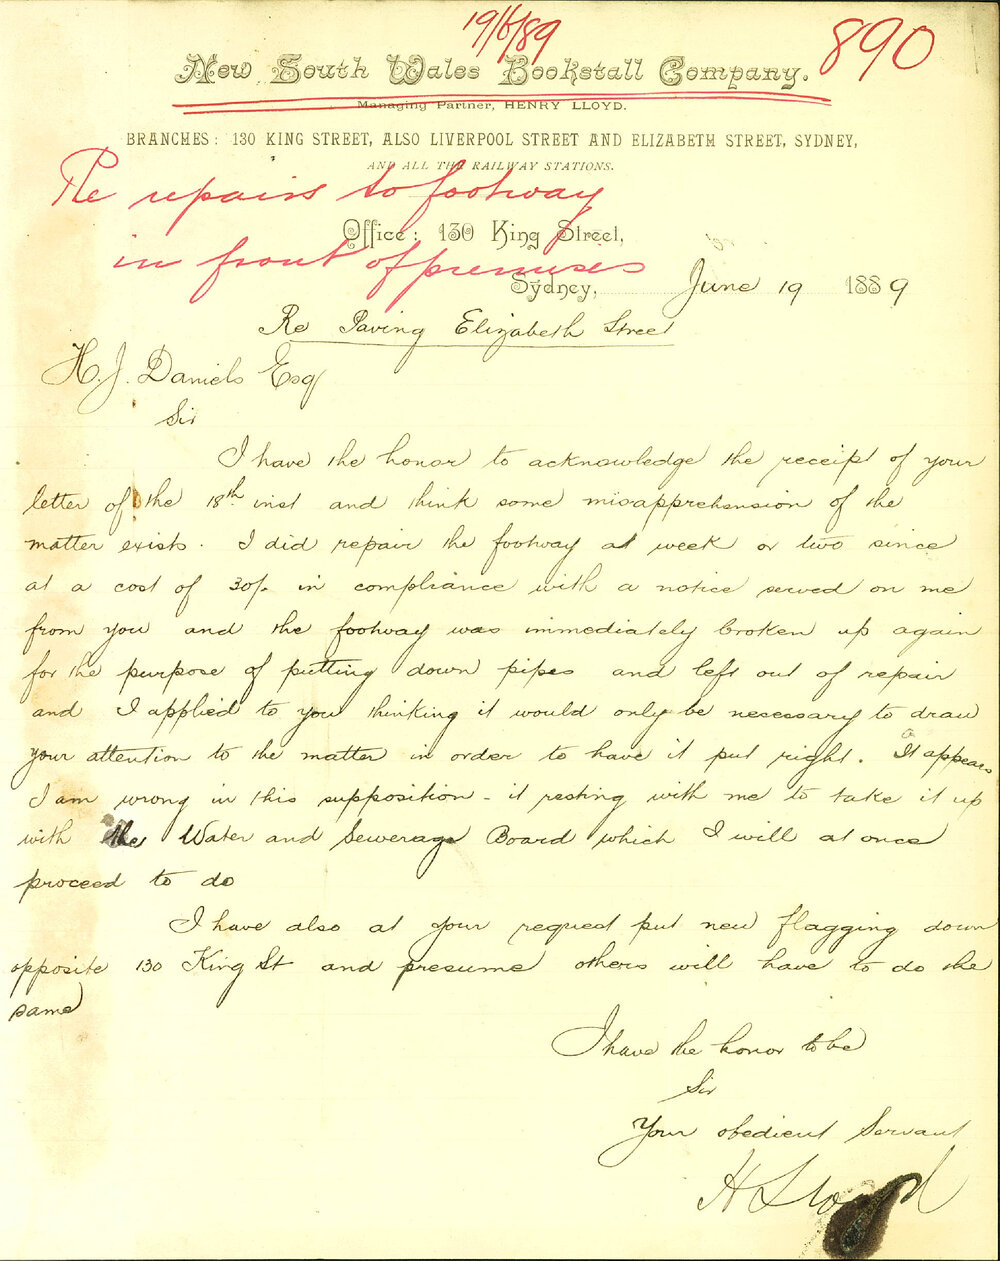 19/6/89
890
New South Wales Bookstall Company.
Managing Partner, HENRY LLOYD.
BRANCHES: 130 KING STREET, ALSO LIVERPOOL STREET AND ELIZABETH STREET, SYDNEY,
AND ALL THE RAILWAY STATIONS.
Re repairs to footway
Office: 130 King Street,
in front of premises
Sydney, June 19 1889
Re Paving Elizabeth Street
H. J. Daniels Esq
Sir
I have the honor to acknowledge the receipt of your
letter of the 18th inst and think some misapprehension of the
matter exists. I did repair the footway a week or two since
at a cost of 30/- in compliance with a notice served on me
from you and the footway was immediately broken up again
for the purpose of putting down pipes and left out of repair
and I applied to you thinking it would only be necessary to draw
your attention to the matter in order to have it put right. It appears
I am wrong in this supposition - it resting with me to take it up
with the Water and Sewerage Board which I will at once
proceed to do
I have also at your request put new flagging down
opposite 130 King St and presume others will have to do the
same
I have the honor to be
Sir
Your obedient Servant
H Lloyd